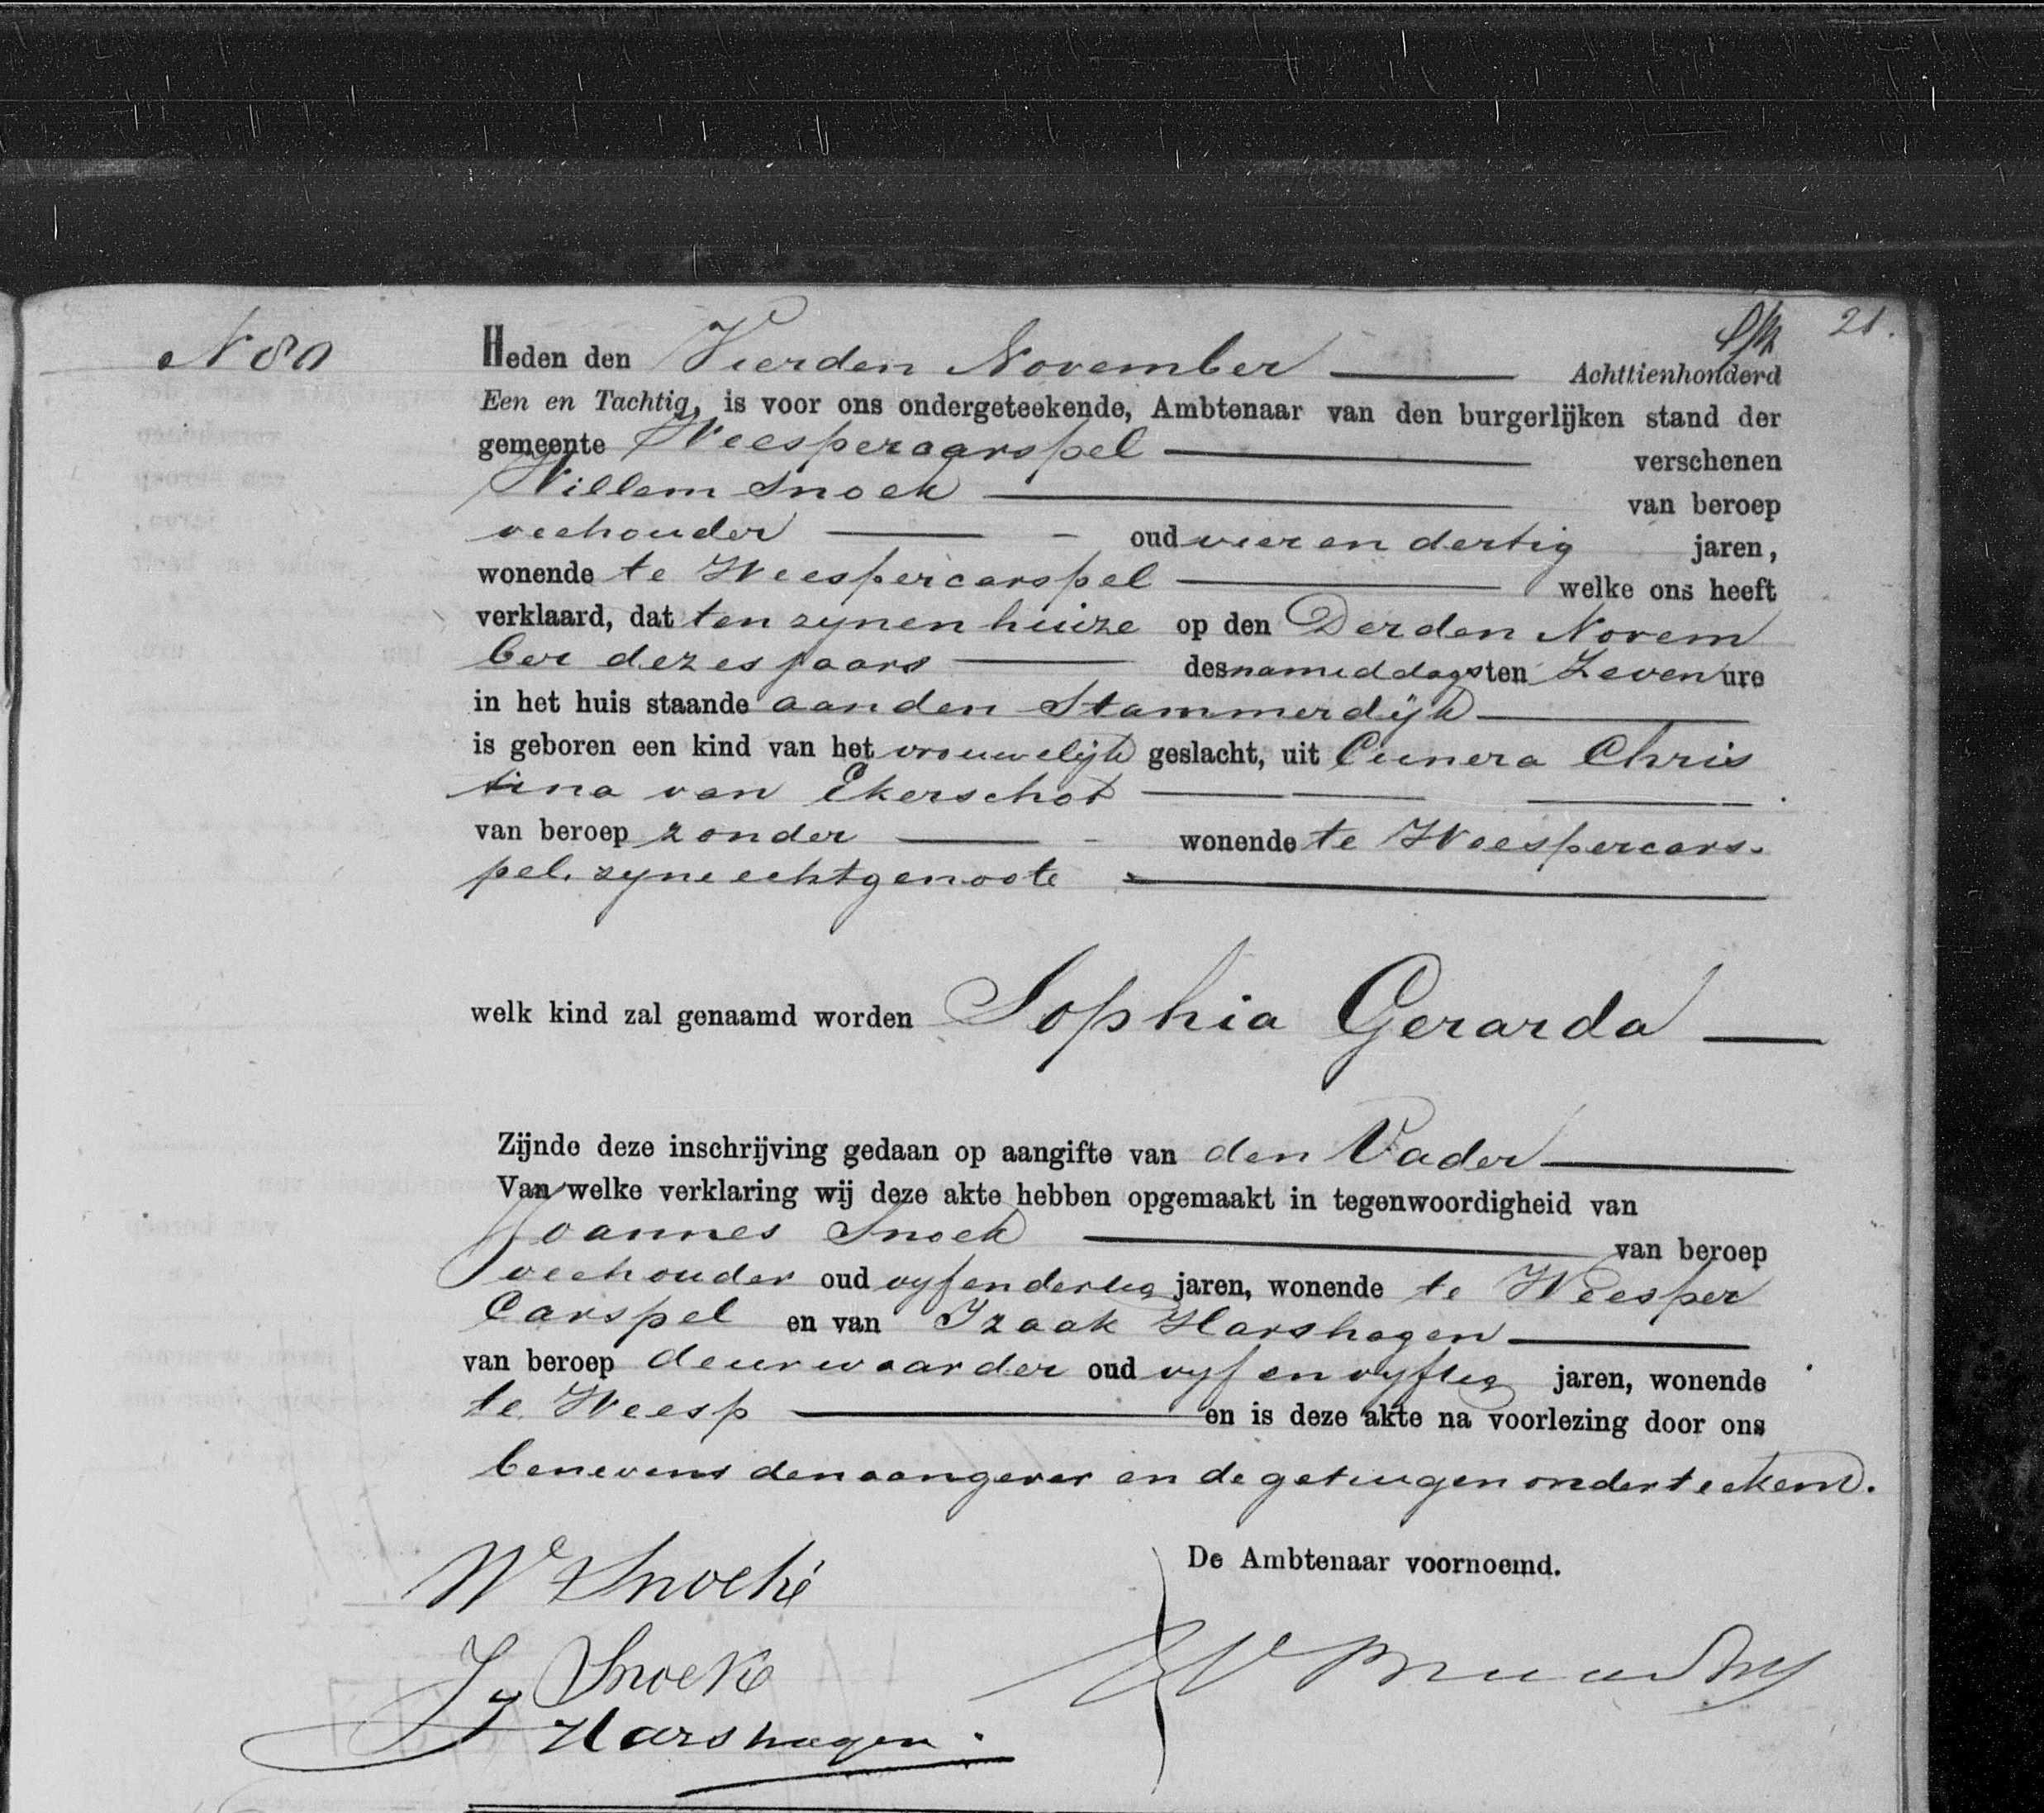 21.
N 80
Heden den Vierden November Achttienhonderd
Een en Tachtig, is voor ons ondergeteekende, Ambtenaar van den burgerlijken stand der
gemeente Weespercarspel verschenen
Willem Snoek van beroep
veehouder oud vier en dertig jaren,
wonende te Weespercarspel welke ons heeft
verklaard, dat ten zynen huize op den Derden Novem
ber dezes jaars des namiddags ten Zeven ure
in het huis staande aan den Stammerdijk
is geboren een kind van het vrouwelijk geslacht, uit Cunera Chris
tina van Ekerschot
van beroep zonder wonende te Weespercars-
pel, zyne echtgenoote
welk kind zal genaamd worden Sophia Gerarda
Zijnde deze inschrijving gedaan op aangifte van den Vader
Van welke verklaring wij deze akte hebben opgemaakt in tegenwoordigheid van
Joannes Snoek van beroep
veehouder oud vyf en dertig jaren, wonende te Weesper
Carspel en van Izaak Harshagen
van beroep deurwaarder oud vyf en vyftig jaren, wonende
te Weesp en is deze akte na voorlezing door ons
benevens den aangever en de getuigen onderteekend.
De Ambtenaar voornoemd.
W Snoek
J Snoek
Harshagen.